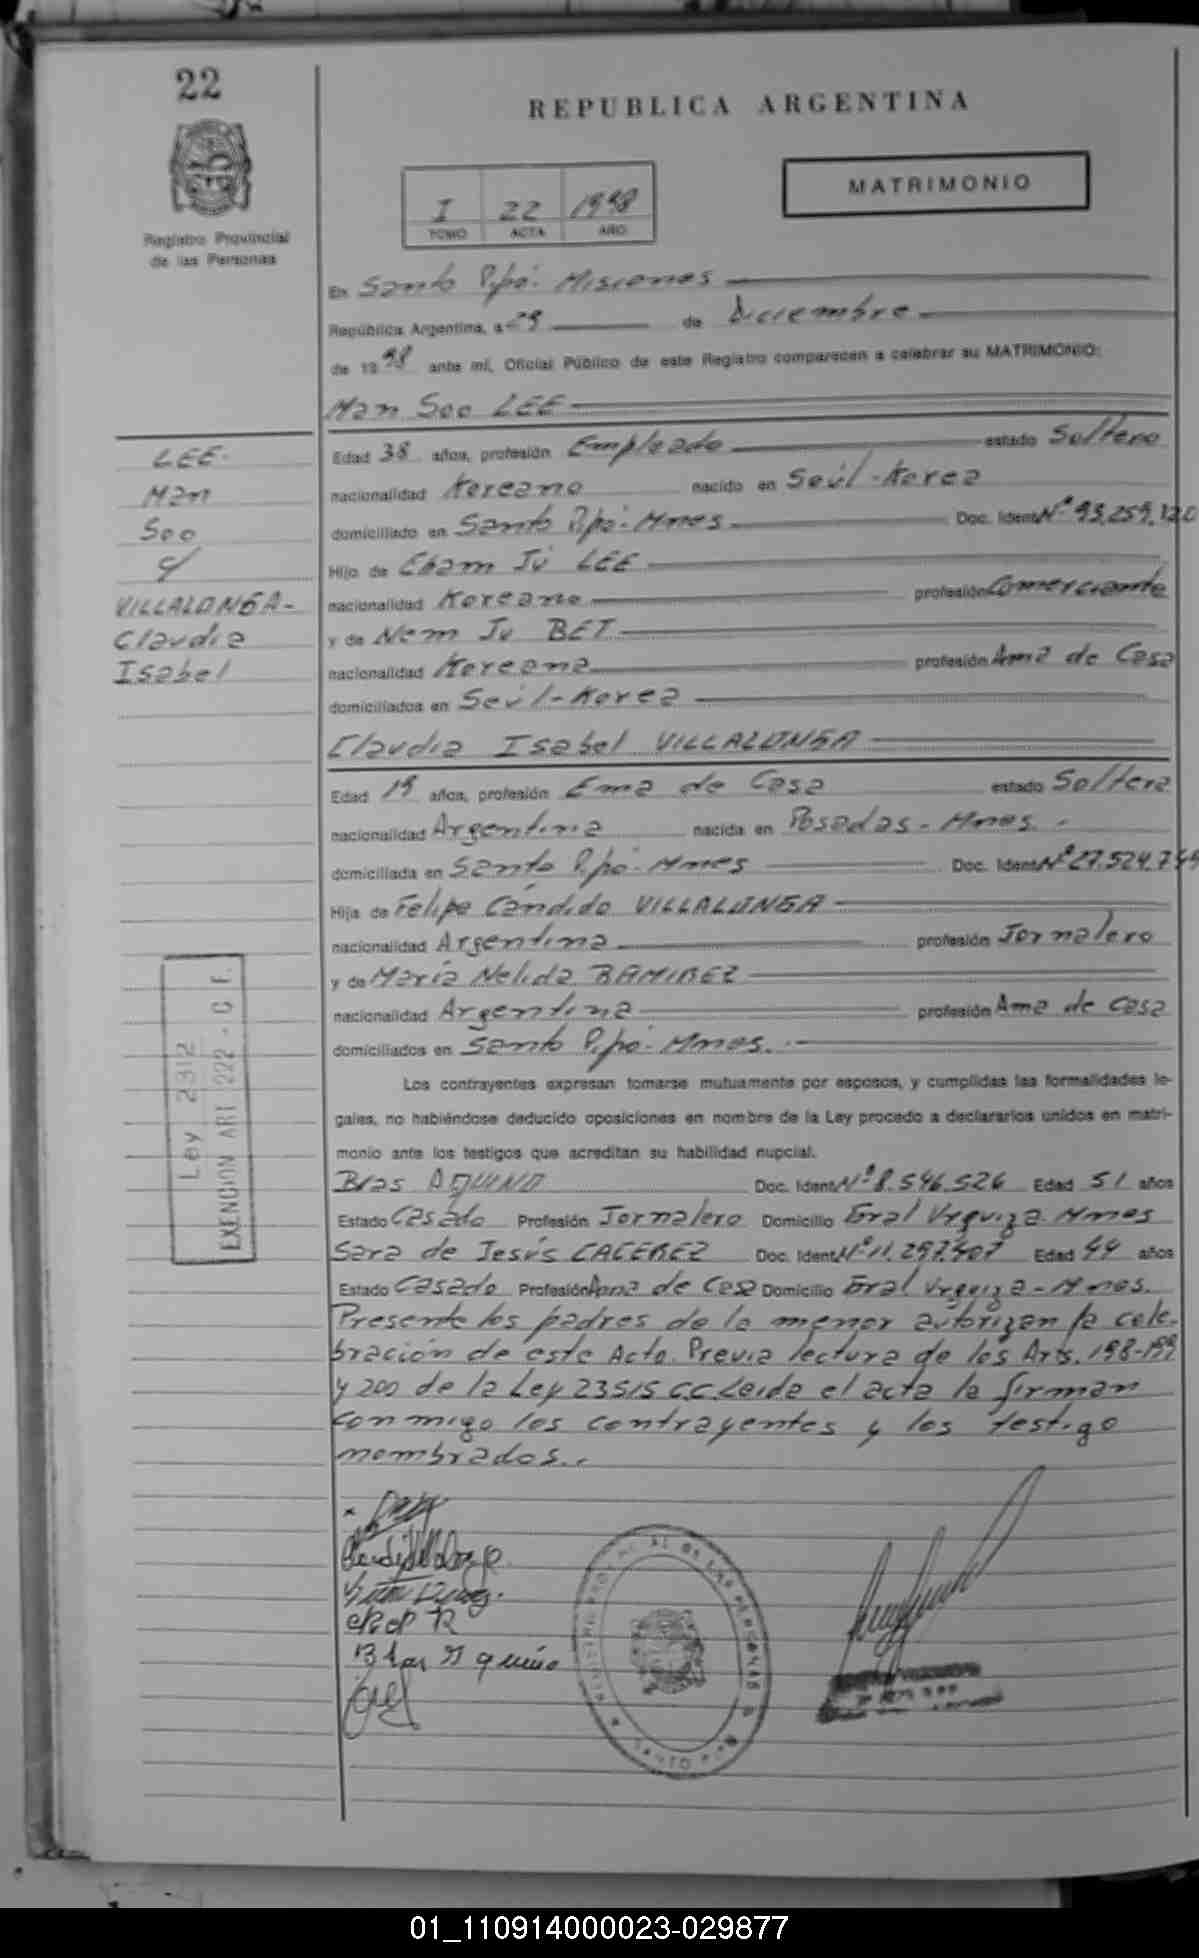 22
REPUBLICA ARGENTINA
Registro Provincial
de las Personas
I 22 1998
TOMO ACTA AÑO
MATRIMONIO
En Santo Pipó - Misiones
República Argentina, a 29 de Diciembre
de 1998 ante mí, Oficial Público de este Registro comparecen a celebrar su MATRIMONIO:
Man Soo LEE
LEE-
Man
Soo
c/
VILLALONGA-
Claudia
Isabel
Edad 38 años, profesión Empleado estado Soltero
nacionalidad Koreano nacido en Seúl-Korea
domiciliado en Santo Pipó-Mnes Doc. Ident Nº 93.259.120
Hijo de Cham Ju LEE
nacionalidad Koreano profesión Comerciante
y de Nem Ju BET
nacionalidad Koreana profesión Ama de Casa
domiciliados en Seúl-Korea
Claudia Isabel VILLALONGA
Edad 19 años, profesión Ema de Casa estado Soltera
nacionalidad Argentina nacida en Posadas-Mnes.-
domiciliada en Santo Pipó-Mnes Doc. Ident Nº 27.524.7
Hija de Felipe Cándido VILLALONGA
nacionalidad Argentina profesión Jornalero
y de María Nelida RAMIREZ
nacionalidad Argentina profesión Ama de Casa
domiciliados en Santo Pipó-Mnes.-
Ley 2312
EXENCION ART 222 - C F.
Los contrayentes expresan tomarse mutuamente por esposos, y cumplidas las formalidades le-
gales, no habiéndose deducido oposiciones en nombre de la Ley procedo a declararlos unidos en matri-
monio ante los testigos que acreditan su habilidad nupcial.
Blas AQUINO Doc. Ident Nº 8.546.526 Edad 51 años
Estado Casado Profesión Jornalero Domicilio Gral Urquiza-Mnes
Sara de Jesús CACEREZ Doc. Ident Nº 11.297.407 Edad 44 años
Estado Casado Profesión Ama de Casa Domicilio Gral Urquiza-Mnes.
Presente los padres de la menor autorizan la cele-
bración de este Acto. Previa lectura de los Arts. 198-199
y 200 de la Ley 23515 C.C. Leida el acta la firman
conmigo los contrayentes y los testigo
nombrados..
Blas Aquino
01_110914000023-029877